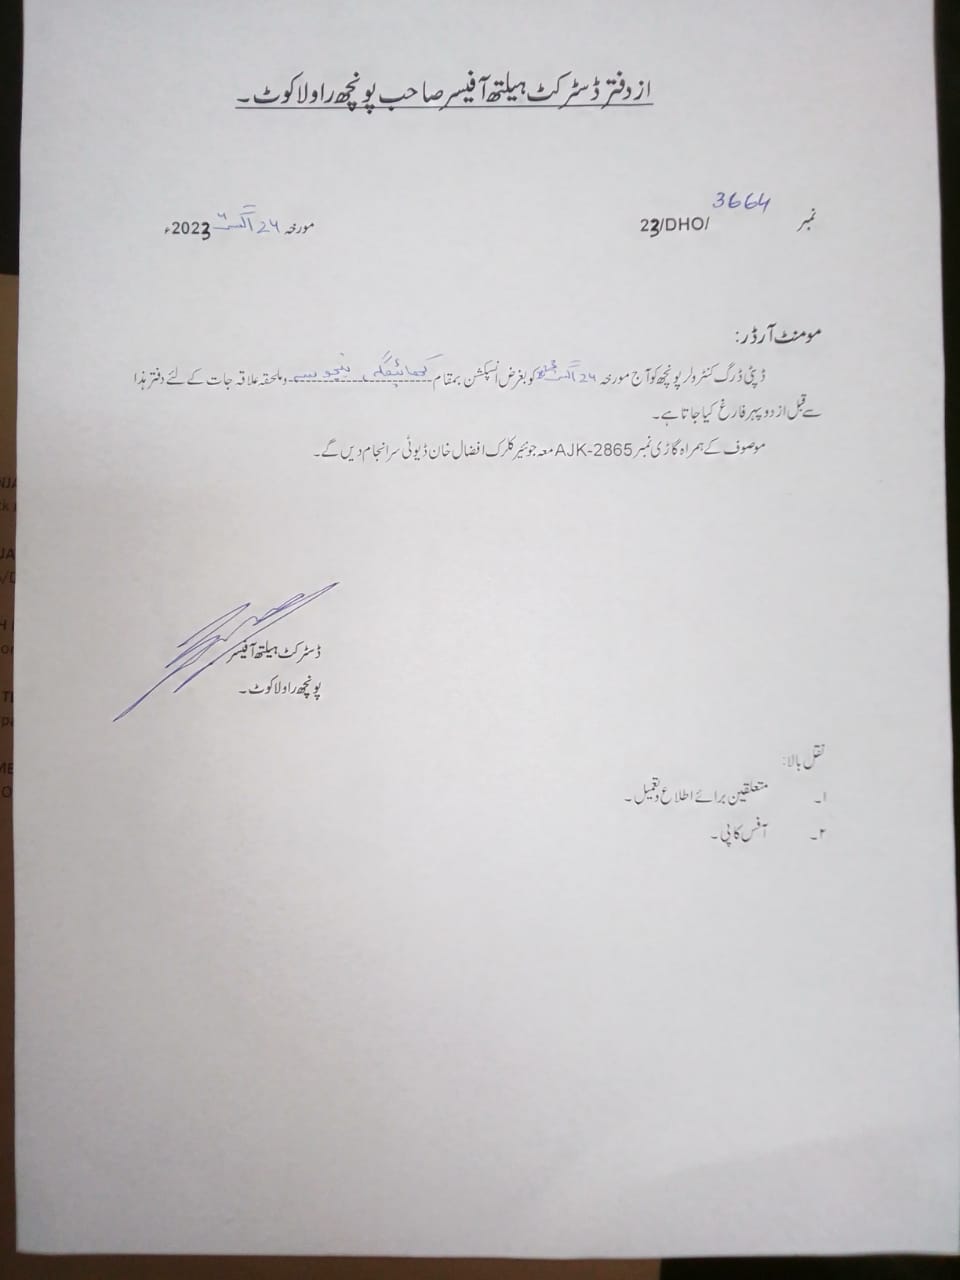 از دفتر ڈسٹرکٹ ہیلتھ آفیسر صاحب پونچھ راولاکوٹ۔
نمبر 3664/DHO/23
مورخہ 24 اگست 2023ء
مومنٹ آرڈر:
ڈپٹی ڈرگ کنٹرولر پونچھ کو آج مورخہ 24 اگست کو بغرض انسپکشن بمقام کھائیگلہ، بنجوسہ وملحقہ علاقہ جات کے لئے دفتر ہذا
سے قبل از دوپہر فارغ کیا جاتا ہے۔
موصوف کے ہمراہ گاڑی نمبر AJK-2865 معہ جونئیر کلرک افضال خان ڈیوٹی سرانجام دیں گے۔
ڈسٹرکٹ ہیلتھ آفیسر
پونچھ راولاکوٹ۔
نقل بالا:
۱۔ متعلقین برائے اطلاع و تعمیل۔
۲۔ آفس کاپی۔